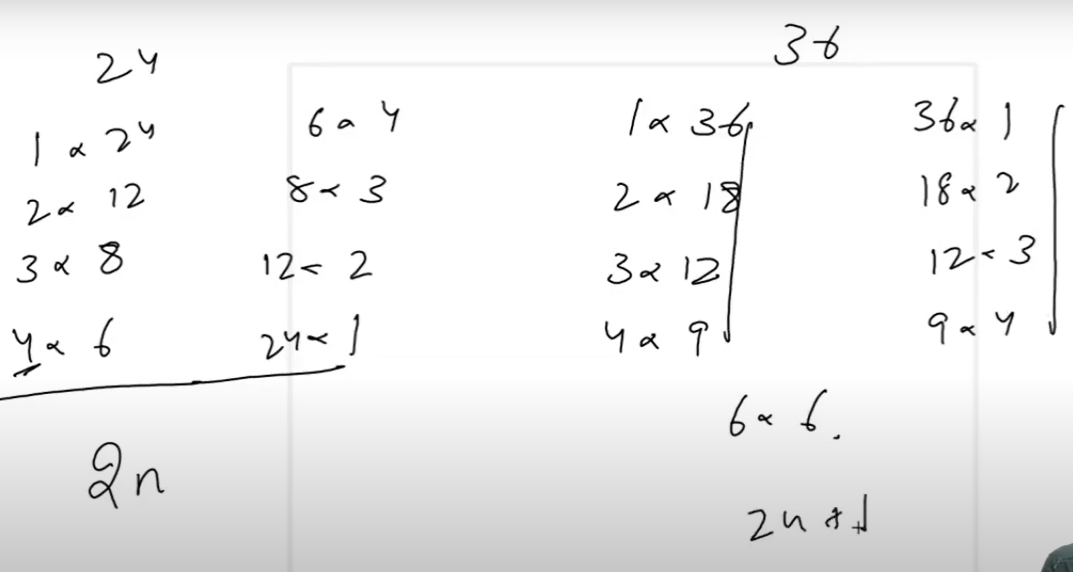 24
1 × 24
2 × 12
3 × 8
4 × 6
6 × 4
8 × 3
12 × 2
24 × 1
2n
36
1 × 36
2 × 18
3 × 12
4 × 9
36 × 1
18 × 2
12 × 3
9 × 4
6 × 6.
2n + 1